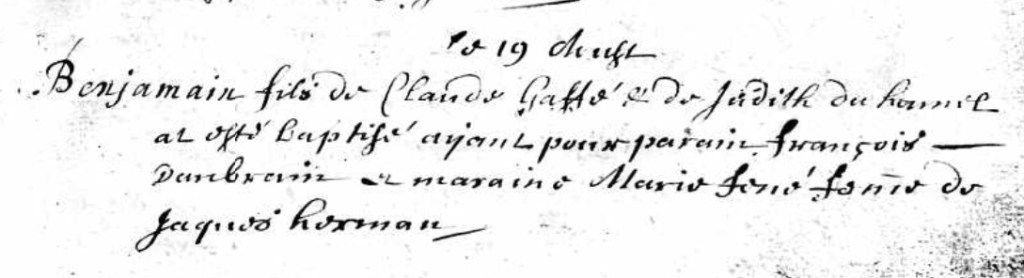 le 19 Aoust
Benjamain fils de Claude Gaffé & de Judith du hamel
at esté baptisé ayant pour parain françois —
Danbrain et maraine Marie fené feme de
Jaques herman